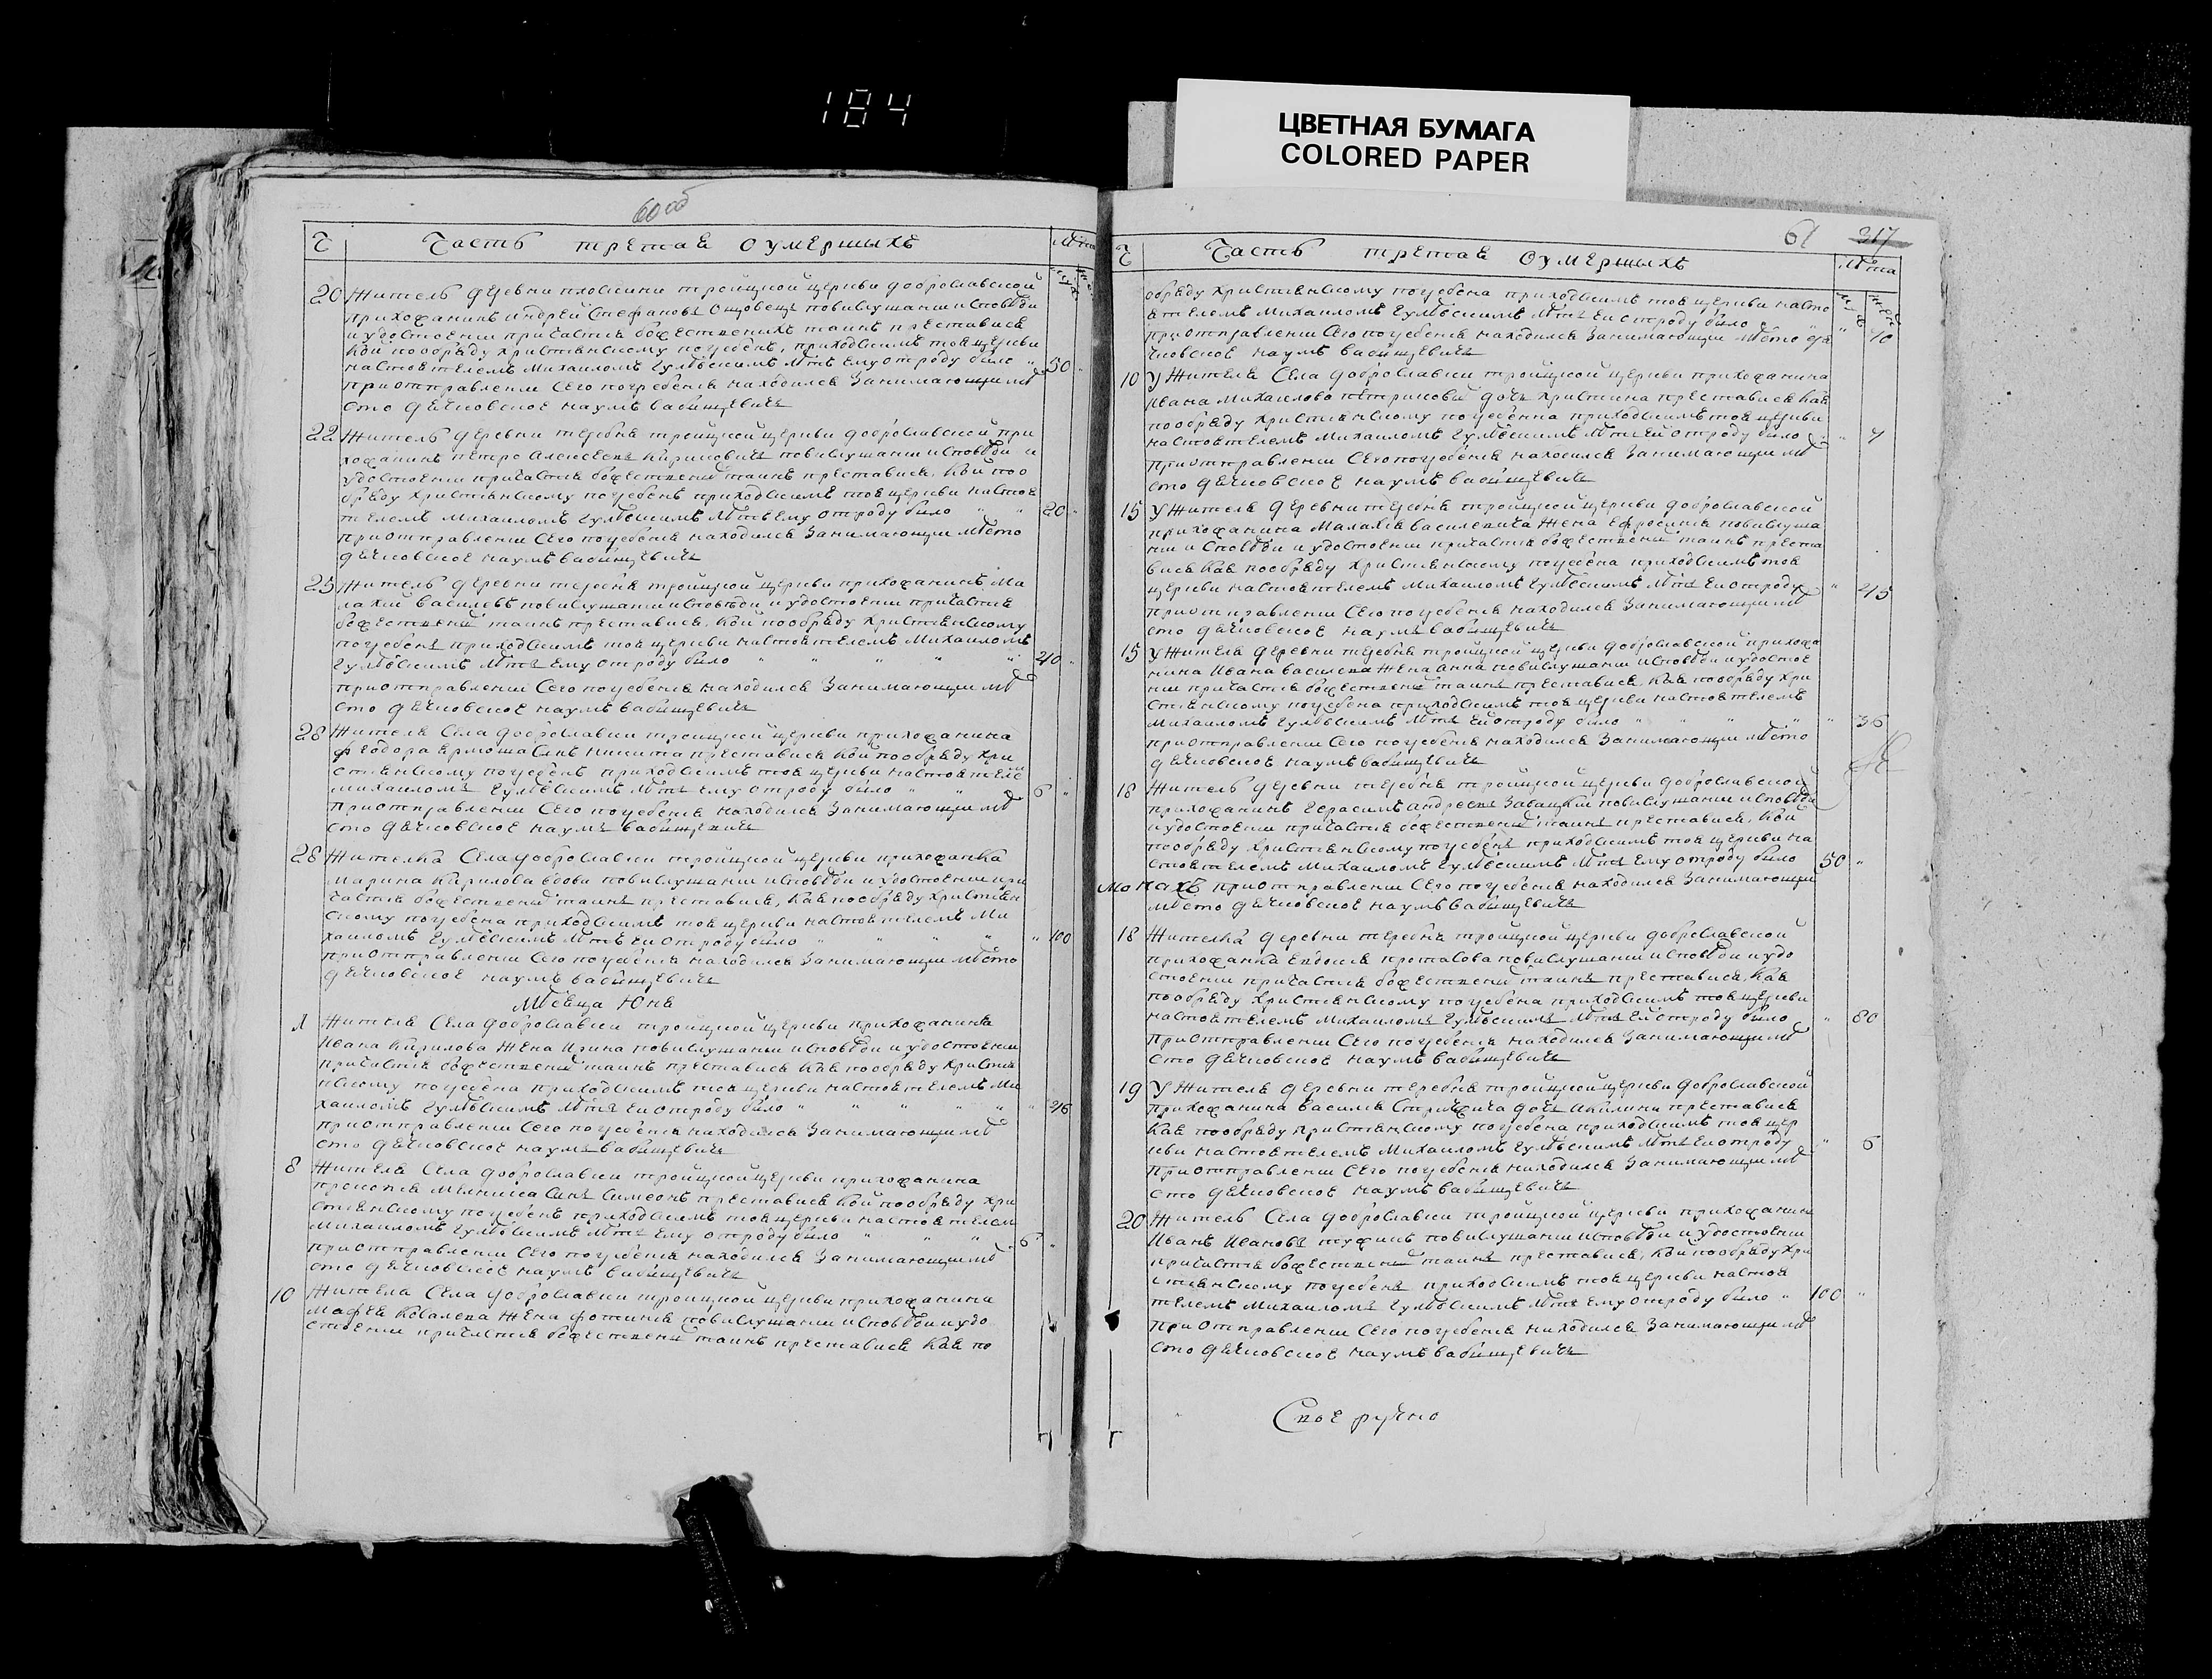 184
ЦВЕТНАЯ БУМАГА
COLORED PAPER
60 об
Ч Часть третая о умершыхъ Лѣта
20 Житель деревни плоскини тройцкой церкви доброславской
прихожанинъ Андрей Стефановъ повислушании исповѣди
и удостоении причастія божественихъ таинъ преставися
кой пообряду христіянскому погребенъ, приходскимъ тоя церкви
настоятелемъ Михаиломъ Гулѣвскимъ лѣтъ ему отроду било " 50 "
приотправлении сего погребенія находился занимающи мѣ
сто дячковское наумъ бабищевичъ
22 Житель деревни теребня тройцкой церкви доброславской при
хожанинъ петро Алексеевъ повислушании исповѣди и
удостоении причастія божествени таинъ преставися, кой поо
бряду христіянскому погребенъ приходскимъ тоя церкви настоя
телемъ Михаиломъ Гулѣвскимъ лѣтъ ему отроду било " " 20 "
приотправлении сего погребенія находился занимающи мѣсто
дячковское наумъ бабищевичъ
25 Житель деревни теребня тройцкой церкви прихожанинъ Ма
лахій василевъ повислушании исповѣди и удостоении причастія
божествени таинъ преставися, кой пообряду христіянскому
погребенъ приходскимъ тоя церкви настоятелемъ Михаиломъ
Гулѣвскимъ лѣтъ ему отроду било " " " " " 40 "
приотправлении сего погребенія находился занимающи мѣ
сто дячковское наумъ бабищевичъ
28 Жителя села доброславки тройцкой церкви прихожанина
феодора ермоша синъ никита преставися кой пообряду хри
стіянскому погребенъ приходскимъ тоя церкви настоятеле
михаиломъ Гулѣвскимъ лѣтъ ему отроду било " " 6 "
приотправлении сего погребенія находился занимающи мѣ
сто дячковское наумъ бабищевичъ
28 Жителка села доброславки тройцкой церкви прихожанка
Марина Кирилова вдова повислушании исповѣди и удостоении при
частія божествени таинъ преставися, кая пообряду христіян
скому погребена приходскимъ тоя церкви настоятелемъ Ми
хаиломъ Гулѣвскимъ лѣтъ еи отроду било " " " " " 100
приотправлении сего погребенія находился занимающи мѣсто
дячковское наумъ бабищевичъ
Мѣсяца Юня
Жителя села доброславки тройцкой церкви прихожанина
Ивана Кирилова жена Ирина повислушании исповѣди и удостоении
причастія божествени таинъ преставися кая пообряду христія
нскому погребена приходскимъ тоя церкви настоятелемъ Ми
хаиломъ Гулѣвскимъ лѣтъ еи отроду било " " " " " "
приотправлении сего погребенія находился занимающи мѣ
сто дячковское наумъ бабищевичъ
8 Жителя села доброславки тройцкой церкви прихожанина
прокопія Мелника синъ Симеонъ преставися кой пообряду хри
стіянскому погребенъ приходскимъ тоя церкви настоятелем
Михаиломъ Гулѣвскимъ лѣтъ ему отроду било " " " 6 "
приотправлении сего погребенія находился занимающи мѣ
сто дячковское наумъ бабищевичъ
10 Жителя села доброславки тройцкой церкви прихожанина
мафея Ковалева жена фотинія повислушании исповѣди и удо
стоении причастія божествени таинъ преставися кая по
61 317
Ч Часть третая о умершыхъ Лѣта
обряду христіянскому погребена приходскимъ тоя церкви насто
ятелемъ Михаиломъ Гулѣвскимъ лѣтъ еи отроду било " " 40
приотправлении сего погребенія находился занимающи мѣсто дя
чковское наумъ бабищевичъ
10 У Жителя села доброславки тройцкой церкви прихожанина
Ивана Михаилова дочъ христина преставися кая
пообряду христіянскому погребенна приходскимъ тоя церкви
настоятелемъ Михаиломъ Гулѣвскимъ лѣтъ ей отроду било " " 4
приотправлении сего погребенія находился занимающи мѣ
сто дячковское наумъ бабищевичъ
15 У Жителя деревни теребня тройцкой церкви доброславской
прихожанина Малахія василевича жена Ефросинія повислуша
нии и исповѣди и удостоении причастія божествени таинъ преста
вися кая пообряду христіянскому погребена приходскимъ тоя
церкви настоятелемъ Михаиломъ Гулѣвскимъ лѣтъ еи отроду " 45
приотправлении сего погребенія находился занимающи мѣ
сто дячковское наумъ бабищевичъ
15 У Жителя деревни теребня тройцкой церкви доброславской прихожа
нина Ивана василева жена анна повислушании исповѣди и удостое
нии причастія божествени таинъ преставися, кая пообряду хри
стіянскому погребена приходскимъ тоя церкви настоятелемъ
Михаиломъ Гулѣвскимъ лѣтъ еи отроду било " " " " " 36
приотправлении сего погребенія находился занимающи мѣсто
дячковское наумъ бабищевичъ
18 Житель деревни теребня тройцкой церкви доброславской
прихожанинъ Герасимъ андреевъ Завацкій повислушании исповѣди
и удостоении причастія божествени таинъ преставися, кой
пообряду христіянскому погребенъ приходскимъ тоя церкви на
стоятелемъ Михаиломъ Гулѣвскимъ лѣтъ ему отроду било 50 "
монахъ приотправлении сего погребенія находился занимающи
мѣсто дячковское наумъ бабищевичъ
18 Жителка деревни теребня тройцкой церкви доброславской
прихожанка Евдокія протасова повислушании исповѣди и удо
стоении причастія божествени таинъ преставися, кая
пообряду христіянскому погребена приходскимъ тоя церкви
настоятелемъ Михаиломъ Гулѣвскимъ лѣтъ еи отроду било " 80
приотправлении сего погребенія находился занимающи мѣ
сто дячковское наумъ бабищевичъ
19 У Жителя деревни теребня тройцкой церкви доброславской
прихожанина василія дочъ Акилина преставися
кая пообряду христіянскому погребена приходскимъ тоя цер
кви настоятелемъ Михаиломъ Гулѣвскимъ лѣтъ еи отроду " 6
приотправлении сего погребенія находился занимающи мѣ
сто дячковское наумъ бабищевичъ
20 Житель села доброславки тройцкой церкви прихожанин
Иванъ Ивановъ повислушании исповѣди и удостоении
причастія божествени таинъ преставися, кой пообряду хри
стіянскому погребенъ приходскимъ тоя церкви настоя
телемъ Михаиломъ Гулѣвскимъ лѣтъ ему отроду било " 100 "
приотправлении сего погребенія находился занимающи мѣ
сто дячковское наумъ бабищевичъ
Своеручно